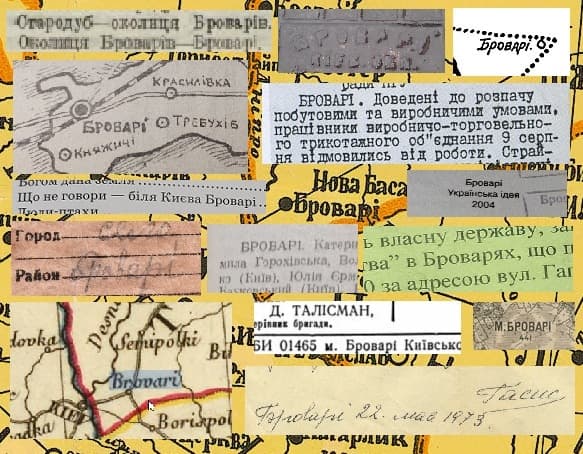 Стародуб околиця Броварів.
Околиця Броварів Броварі
БРОВАРІ
Броварі.
КРАСИЛІВКА
БРОВАРІ
ТРЕБУХІВ
КНЯЖИЧІ
БРОВАРІ. Доведені до розпачу
побутовими та виробничими умовами,
працівники виробничо-торговельно-
го трикотажного об"єднання 9 серп-
ня відмовились від роботи. Страй-
Богом дана земля
Що не говори — біля Києва Броварі
Люди-птахи
Нова Баса
Броварі
Броварі
Українська ідея
2004
Город
Район Броварі
БРОВАРІ. Катери
мила Горохівська, Во
ко (Київ), Юлія
(Київ)
ь власну державу, за
тва" в Броварях, що п
0 за адресою вул. Га
Д. ТАЛІСМАН,
керівник бригади.
БИ 01465 м. Броварі Київсько
М.БРОВАРІ
441
Semipolki
Brovari
KIEV
Borispol
Броварі 22. мая 1973